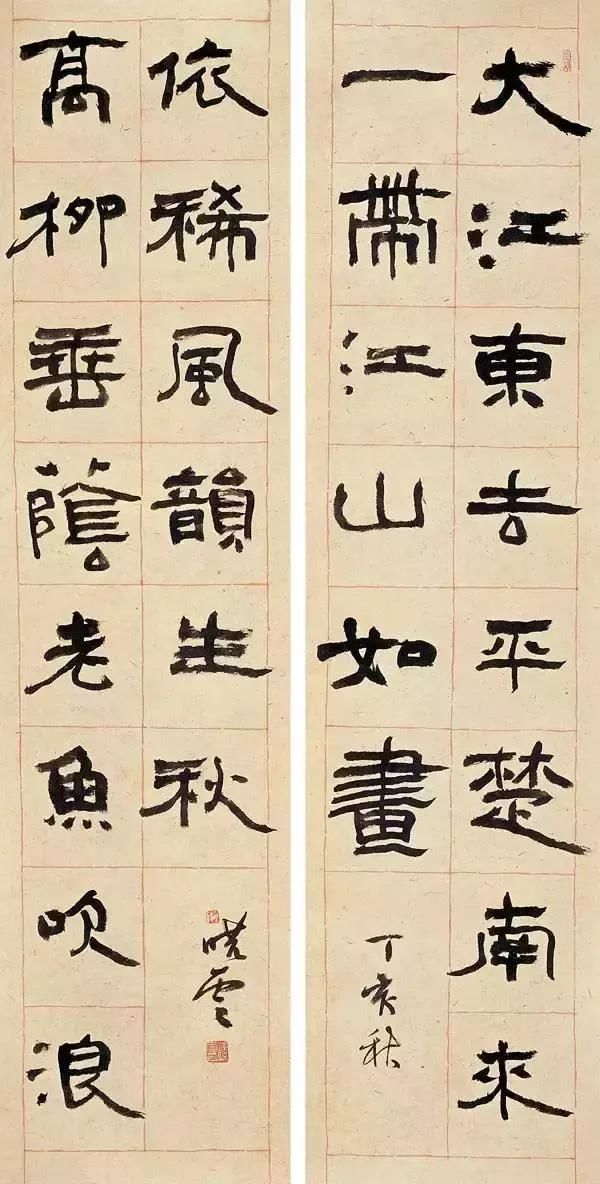 大江東去平楚南來
一帶江山如畫
丁亥秋
高柳垂蔭老魚吹浪
依稀風韻生秋
曉雲